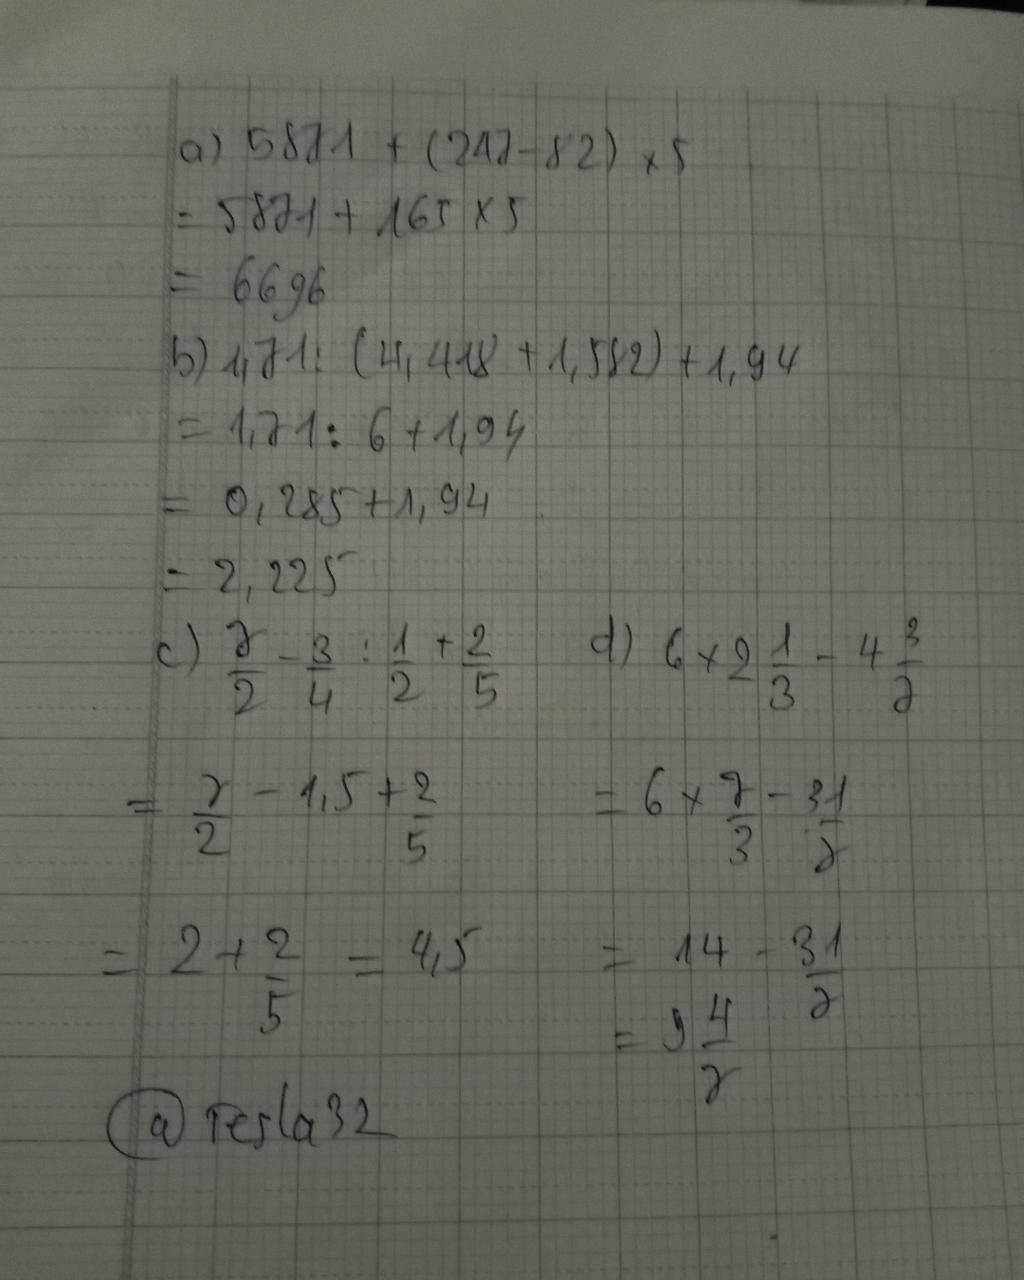 a) 5871 + (247-82) x 5
= 5871 + 165 x 5
= 6696
b) 1,71: (4,418 + 1,582) + 1,94
= 1,71: 6 + 1,94
= 0,285 + 1,94
= 2,225
c) 7/2 - 3/4 : 1/2 + 2/5
= 7/2 - 1,5 + 2/5
= 2 + 2/5 = 4,5
d) 6 x 2 1/3 - 4 3/7
= 6 x 7/3 - 31/7
= 14 - 31/7
= 9 4/7
@Tesla32